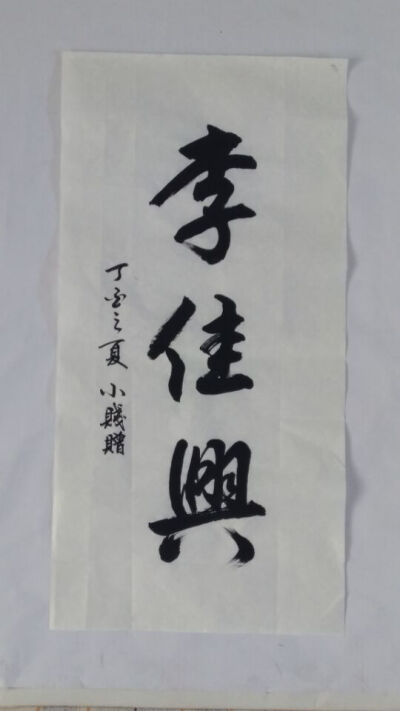 李佳興
丁酉之夏 小賤贈